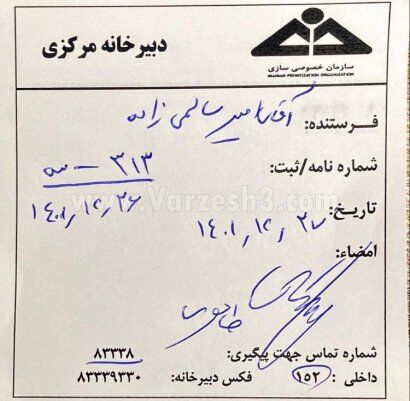 دبیرخانه مرکزی
سازمان خصوصی سازی
IRANIAN PRIVATIZATION ORGANIZATION
فرستنده: آقای امیر سالمی زاده
شماره نامه/ثبت: ۳۱۳ – س
تاریخ: ۱۴۰۱,۱۲,۲۷
۱۴۰۱,۱۲,۲۶
امضاء:
www.Varzesh3.com
شماره تماس جهت پیگیری: ۸۳۳۳۸
داخلی : ۱۵۲ فکس دبیرخانه: ۸۳۳۳۹۳۳۰